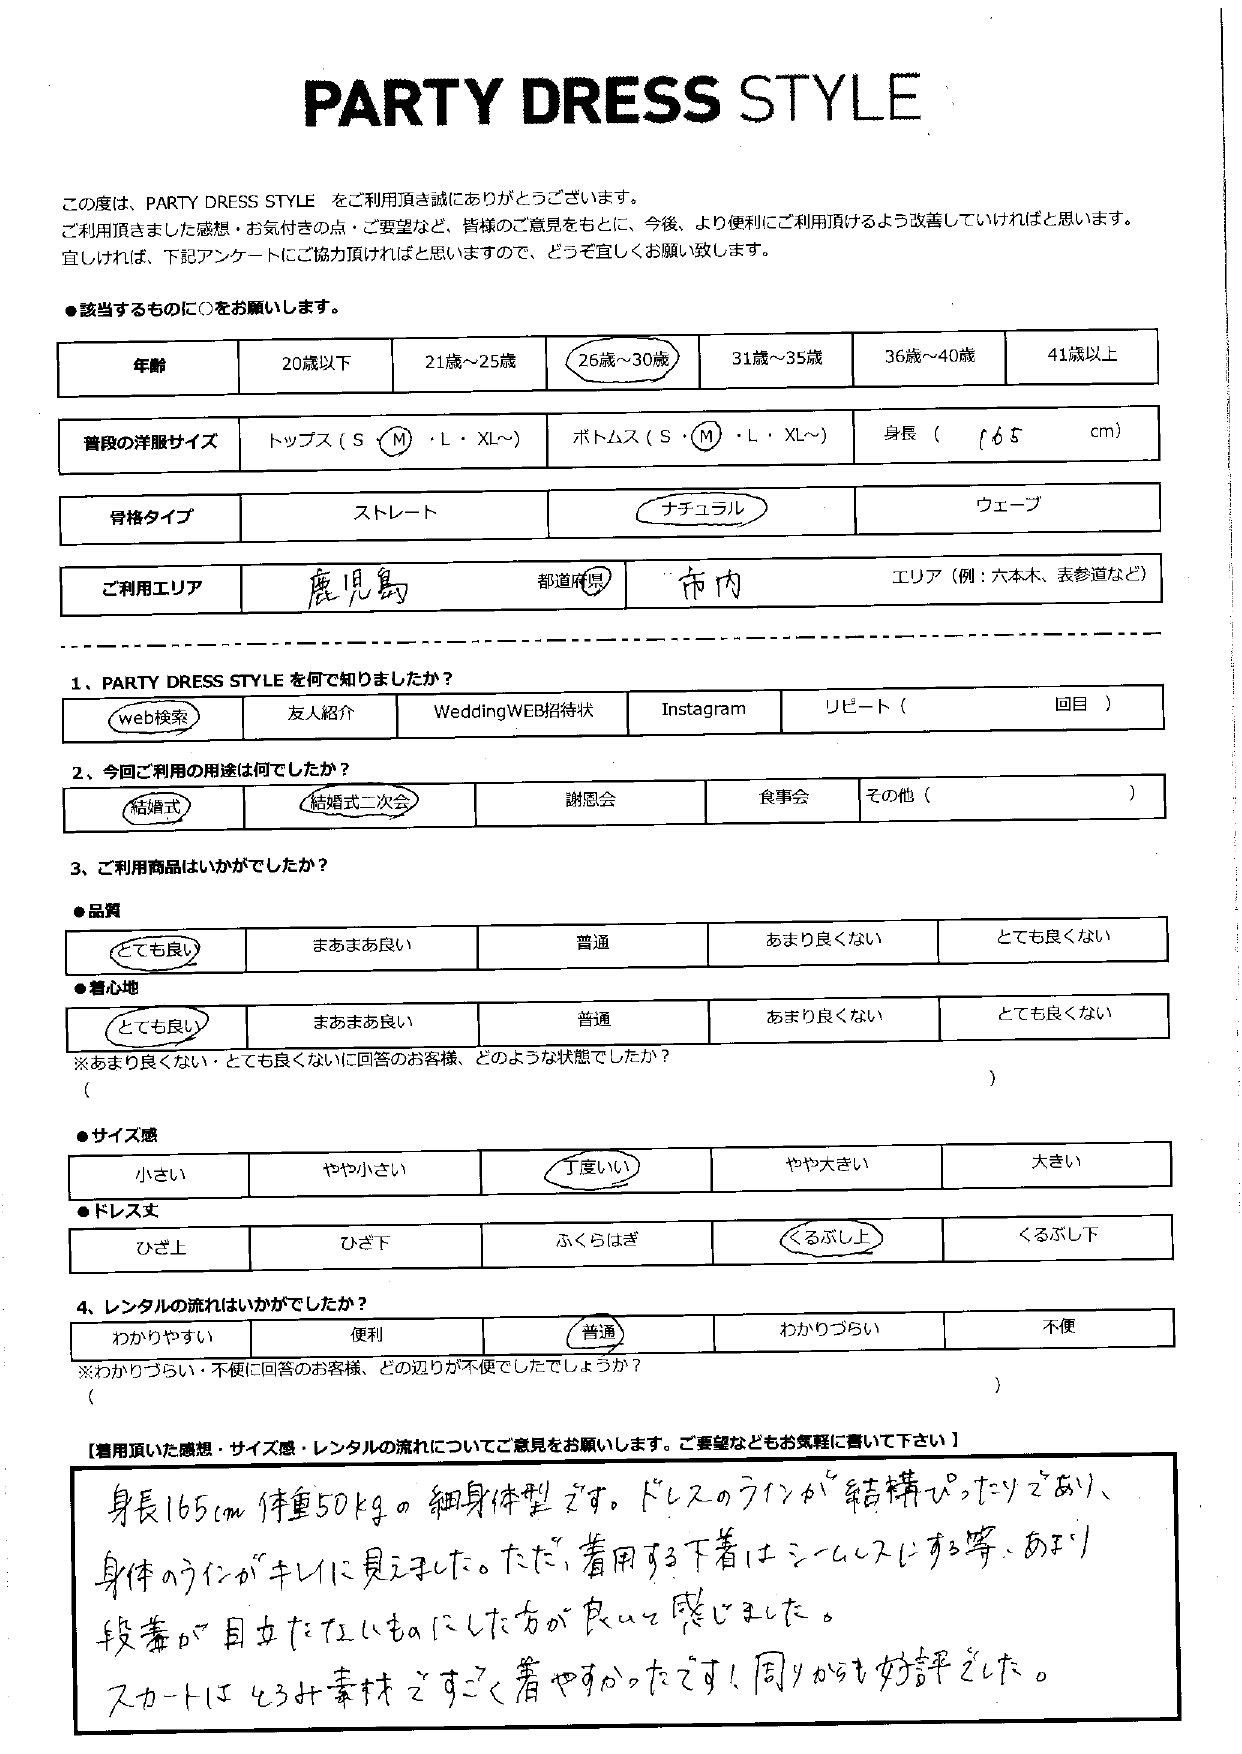 PARTY DRESS STYLE
この度は、PARTY DRESS STYLE をご利用頂き誠にありがとうございます。
ご利用頂きました感想・お気付きの点・ご要望など、皆様のご意見をもとに、今後、より便利にご利用頂けるよう改善していければと思います。
宜しければ、下記アンケートにご協力頂ければと思いますので、どうぞ宜しくお願い致します。
●該当するものに○をお願いします。
年齢 20歳以下 21歳～25歳 26歳～30歳 31歳～35歳 36歳～40歳 41歳以上
普段の洋服サイズ トップス（ S ・ M ・L ・ XL～） ボトムス（ S ・ M ・L ・ XL～） 身長 （ 165 cm）
骨格タイプ ストレート ナチュラル ウェーブ
ご利用エリア 鹿児島 都道府県 市内 エリア（例：六本木、表参道など）
1、PARTY DRESS STYLE を何で知りましたか？
web検索 友人紹介 WeddingWEB招待状 Instagram リピート（ 回目 ）
2、今回ご利用の用途は何でしたか？
結婚式 結婚式二次会 謝恩会 食事会 その他（ ）
3、ご利用商品はいかがでしたか？
●品質
とても良い まあまあ良い 普通 あまり良くない とても良くない
●着心地
とても良い まあまあ良い 普通 あまり良くない とても良くない
※あまり良くない・とても良くないに回答のお客様、どのような状態でしたか？
（ ）
●サイズ感
小さい やや小さい 丁度いい やや大きい 大きい
●ドレス丈
ひざ上 ひざ下 ふくらはぎ くるぶし上 くるぶし下
4、レンタルの流れはいかがでしたか？
わかりやすい 便利 普通 わかりづらい 不便
※わかりづらい・不便に回答のお客様、どの辺りが不便でしたでしょうか？
（ ）
【着用頂いた感想・サイズ感・レンタルの流れについてご意見をお願いします。ご要望などもお気軽に書いて下さい 】
身長165cm 体重50kgの 細身体型です。ドレスのラインが結構ぴったりであり、
身体のラインがキレイに見えました。ただ、着用する下着はシームレスにする等、あまり
段差が目立たないものにした方が良いと感じました。
スカートはとろみ素材ですごく着やすかったです！周りからも好評でした。